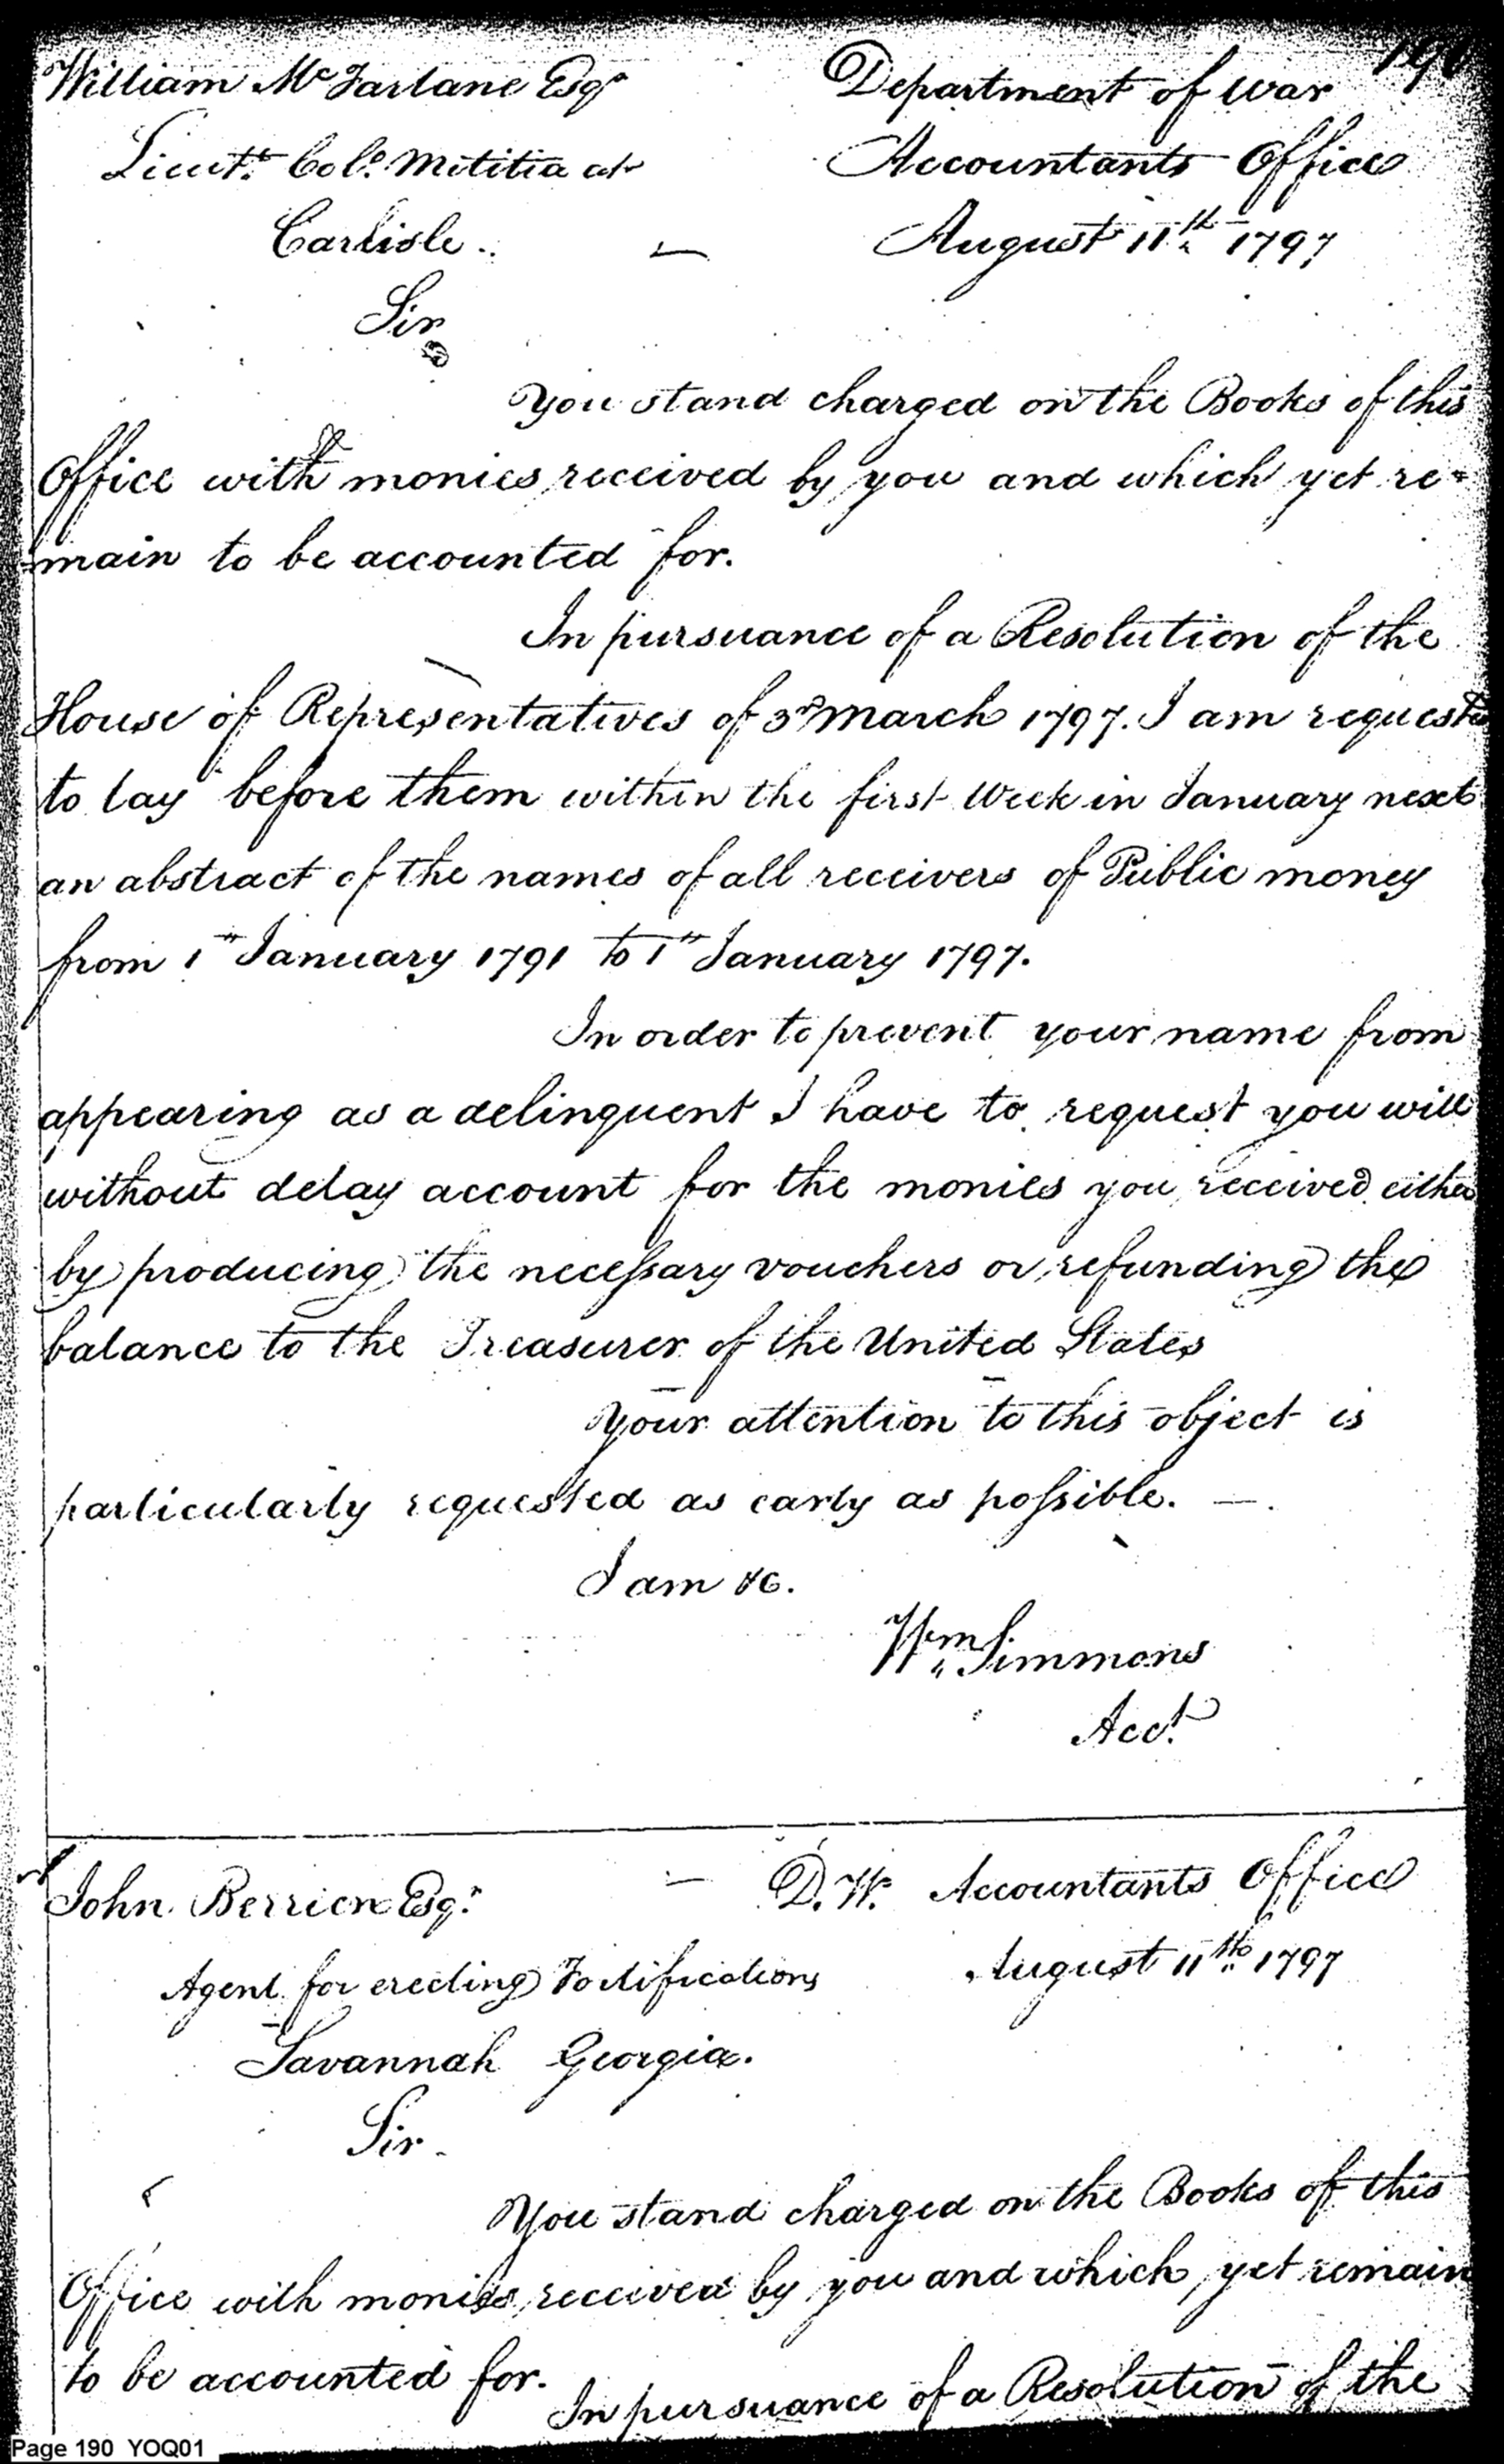 190
William McFarlane Esqr Department of War
Lieutt. Colo. Melitia at Accountants Office
Carlisle. — August 11th 1797
Sir
You stand charged on the Books of this
Office with monies received by you and which yet re=
=main to be accounted for.
In pursuance of a Resolution of the
House of Representatives of 3d March 1797. I am requested
to lay before them within the first Week in January next
an abstract of the names of all receivers of Public money
from 1st January 1791 to 1st January 1797.
In order to prevent your name from
appearing as a delinquent I have to request you will
without delay account for the monies you received either
by producing the necessary vouchers or refunding the
balance to the Treasurer of the United States
Your attention to this object is
particularly requested as early as possible. —.
I am &c.
Wm Simmons
Acct.
John Berrien Esqr. — D. W. Accountants Office
Agent for erecting Fortifications August 11th 1797
Savannah Georgia.
Sir.
You stand charged on the Books of this
Office with monies received by you and which yet remain
to be accounted for.
In pursuance of a Resolution of the
Page 190 YOQ01